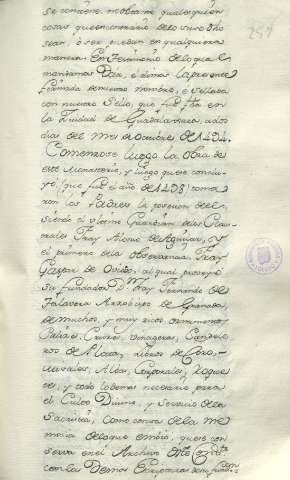 se contiene, no obstante qualesquier
cosas que en contrario de lo suso dho
sean, ò ser puedan en qualquiera
manera. En testimonio de lo qual
mandamos Dar, è dimos la presente
firmada de nuestro nombre, è sellada
con nuestro Sello, que fué fha en
la Ciudad de Guadalaxara, a dos
dias del mes de Octubre de 1494.
Comenzose luego la obra de
este Monasterio, y luego que se conclu-
yó (que fué el año de 1498) toma-
ron los Padres la posesion de el,
siendo el ultimo Guardian de los Claus-
trales Fray Alonso de Aguilar, y
el primero de la Observancia Fray
Gaspar de Oviedo, al qual proveyó
su fundador Dn Fray Fernando de
Talavera Arzobispo de Granada
de muchos, y muy ricos ornamentos
Calices, Cruzes, Vinageras, Candele-
ros de Plata, Libros de Coro,
Misales, Albas, Corporales, Roque-
tes, y todo lo demas necesario para
el Culto Divino, y servicio de la
Sacristia, como consta de la me-
moria de lo que embió, que se con-
serva en el Archivo de este Convto
con las Demas Escrituras de su fundacion
257